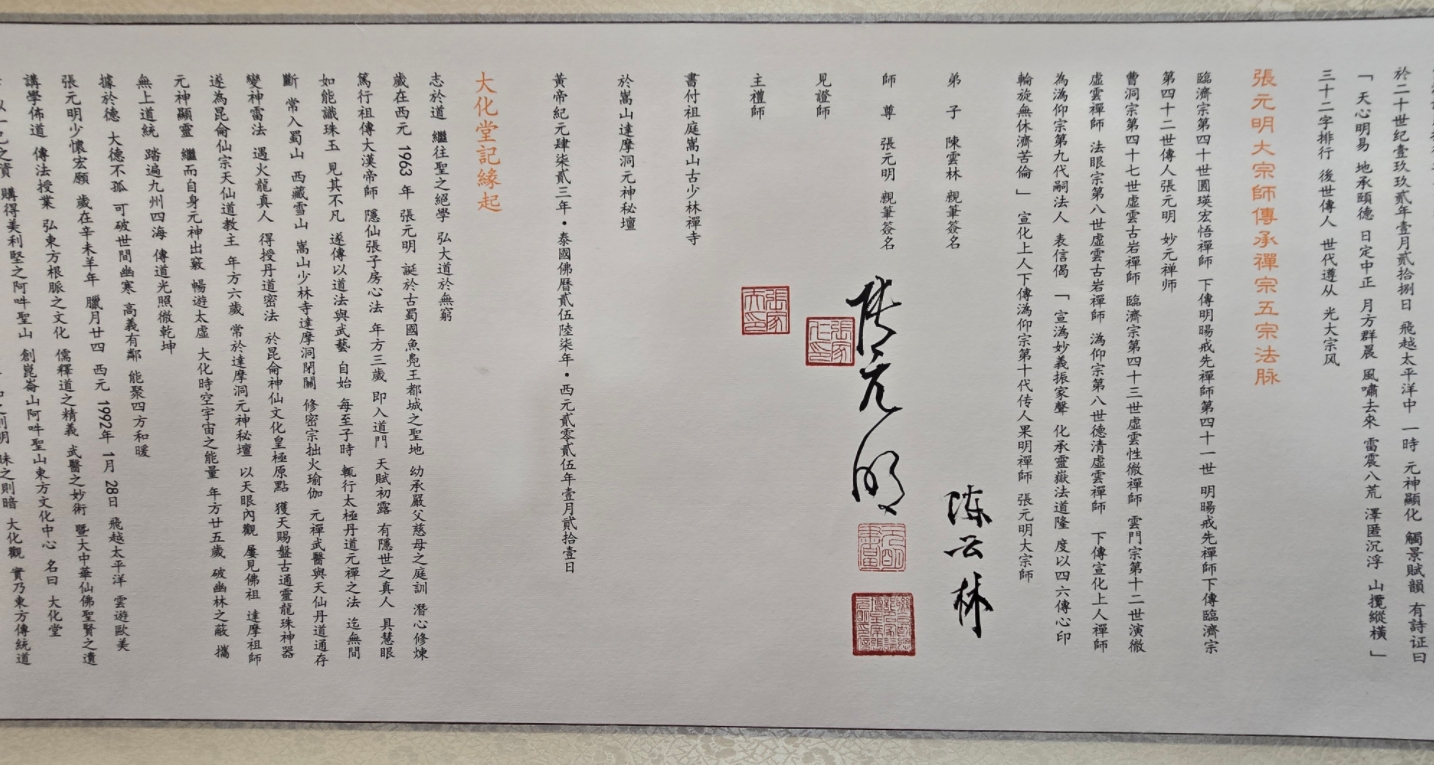 於二十世紀壹玖玖貳年壹月貳拾捌日 飛越太平洋中 一時 元神顯化 觸景賦韻 有詩证曰
「天心明易 地承頤德 日定中正 月方群晨 風嘯去來 雷震八荒 澤匿沉浮 山攬縱橫 」
三十二字排行 後世傳人 世代遵从 光大宗风
張元明大宗師傳承禪宗五宗法脉
臨濟宗第四十世圓瑛宏悟禪師 下傳明暘戒先禪師第四十一世 明暘戒先禪師下傳臨濟宗
第四十二世傳人張元明 妙元禅师
曹洞宗第四十七世虛雲古岩禪師 臨濟宗第四十三世虛雲性徹禪師 雲門宗第十二世演徹
虛雲禪師 法眼宗第八世虛雲古岩禪師 溈仰宗第八世德清虛雲禪師 下傳宣化上人禪師
為溈仰宗第九代嗣法人 表信偈 「宣溈妙義振家聲 化承靈嶽法道隆 度以四六傳心印
輪旋無休濟苦倫」 宣化上人下傳溈仰宗第十代传人果明禪師 張元明大宗師
弟 子 陳雲林 親筆簽名
陈云林
師 尊 張元明 親筆簽名
張元明
見證師
主禮師
書付祖庭嵩山古少林禪寺
於嵩山達摩洞元神秘壇
黃帝紀元肆柒貳三年·泰國佛曆貳伍陸柒年·西元貳零貳伍年壹月貳拾壹日
大化堂記緣起
志於道 繼往聖之絕學 弘大道於無窮
歲在西元 1963 年 張元明 誕於古蜀國魚鳧王都城之聖地 幼承嚴父慈母之庭訓 潛心修煉
篤行祖傳大漢帝師 隱仙張子房心法 年方三歲 即入道門 天賦初露 有隱世之真人 具慧眼
如能識珠玉 見其不凡 遂傳以道法與武藝 自始 每至子時 輒行太極丹道元禪之法 迄無間
斷 常入蜀山 西藏雪山 嵩山少林寺達摩洞閉關 修密宗拙火瑜伽 元禪武醫與天仙丹道通存
變神雷法 遇火龍真人 得授丹道密法 於昆侖神仙文化皇極原點 獲天賜盤古通靈龍珠神器
遂為昆侖仙宗天仙道教主 年方六歲 常於達摩洞元神秘壇 以天眼內觀 屢見佛祖 達摩祖師
元神顯靈 繼而自身元神出竅 暢遊太虛 大化時空宇宙之能量 年方廿五歲 破幽林之蔽 攜
無上道統 踏遍九州四海 傳道光照微乾坤
據於德 大德不孤 可破世間幽寒 高義有鄰 能聚四方和暖
張元明少懷宏願 歲在辛未羊年 臘月廿四 西元 1992年 1月 28日 飛越太平洋 雲遊歐美
講學佈道 傳法授業 弘東方根脈之文化 儒釋道之精義 武醫之妙術 暨大中華仙佛聖賢之遺
以一己之資 購得美利堅之阿吽聖山 創崑崙山阿吽聖山東方文化中心 名曰 大化堂
則明 昧之則暗 大化觀 實乃東方傳統道